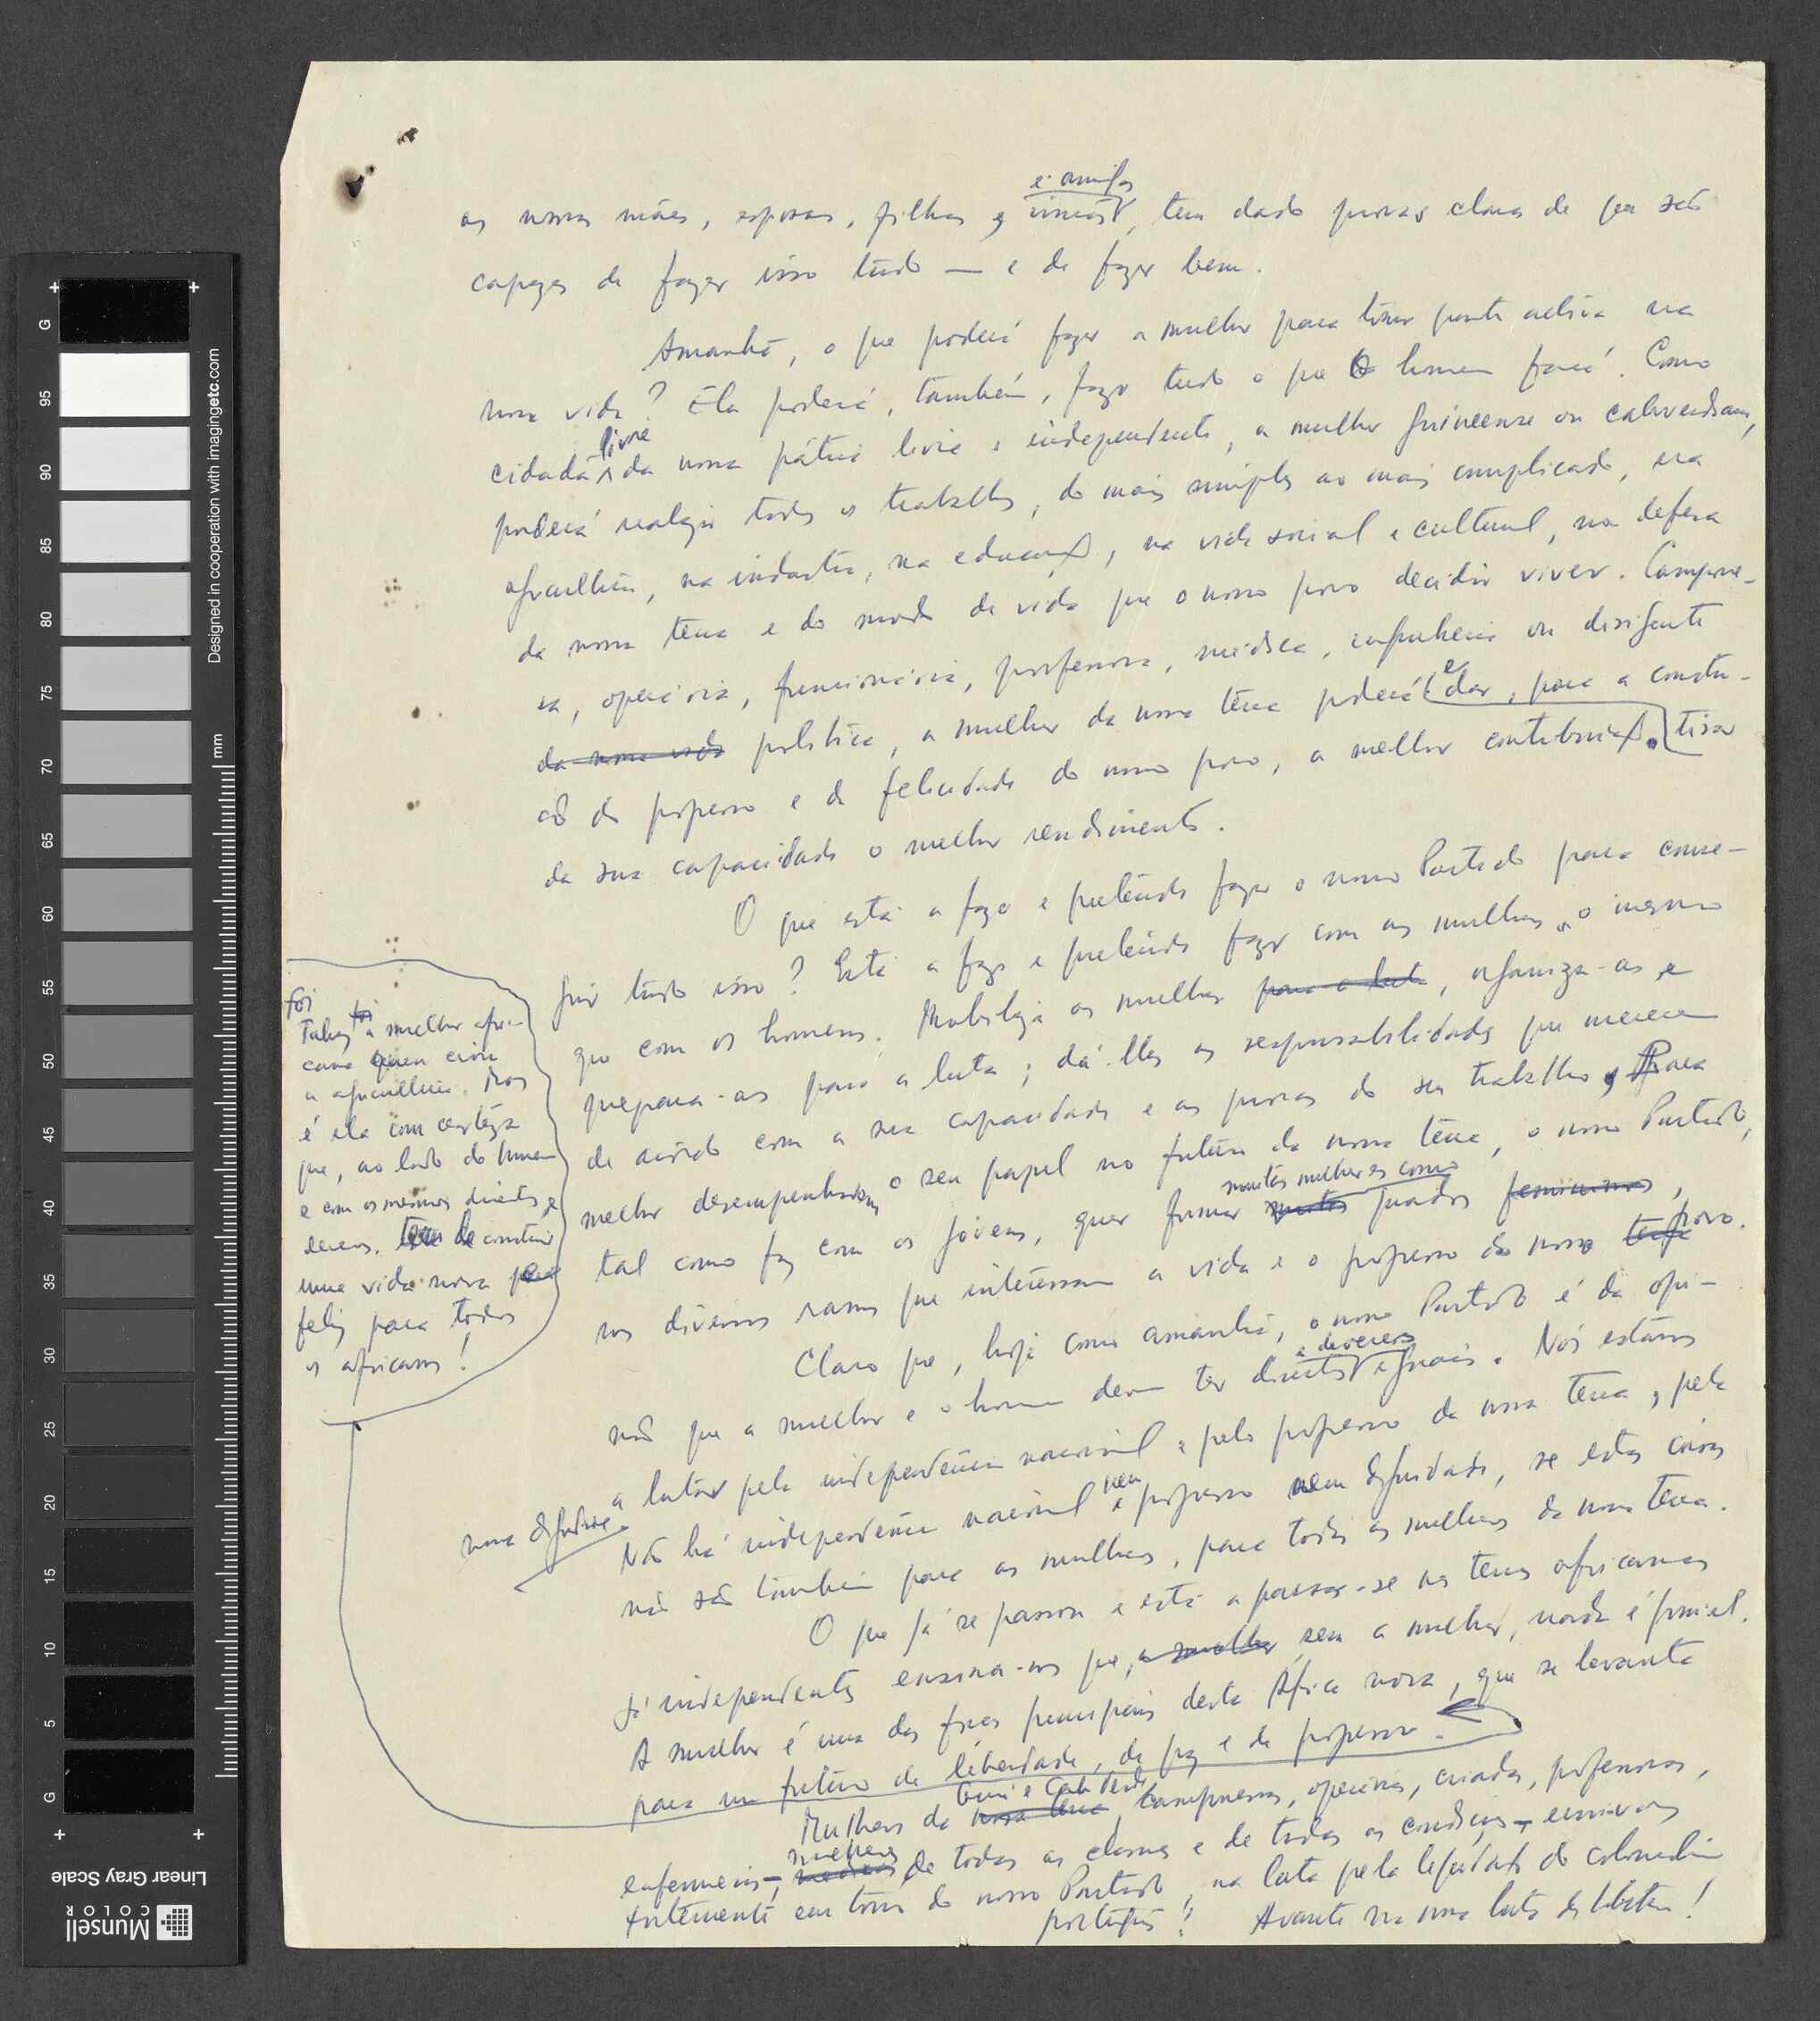 e amigas
as nossas mães, esposas, filhas e irmãs, tem dado provas claras de que são
capazes de fazer isso tudo — e de fazer bem.
Amanhã, o que poderá fazer a mulher para tomar parte activa na
nova vida? Ela poderá, também, fazer tudo o que o homem fará. Como
livre
cidadã da nossa pátria livre e independente, a mulher guineense ou caboverdeana,
poderá realizar todos os trabalhos, do mais simples ao mais complicado, na
agricultura, na indústria, na educação, na vida social e cultural, na defesa
da nossa terra e do modo de vida que o nosso povo decidir viver. Campone-
sa, operária, funcionária, professora, médica, engenheira ou dirigente
da nossa vida política, a mulher da nossa terra poderá dar, para a constru-
ção do progresso e da felicidade do nosso povo, a melhor contribuição. e tirar
da sua capacidade o melhor rendimento.
O que está a fazer e pretende fazer o nosso Partido para conse-
guir tudo isso? Está a fazer e pretende fazer com as mulheres o mesmo
que com os homens. Mobiliza as mulheres para a luta, organiza-as e
prepara-as para a luta; dá-lhes as responsabilidades que merecem
de acôrdo com a sua capacidade e as provas do seu trabalho. Para
melhor desempenharem o seu papel no futuro da nossa terra, o nosso Partido,
muitas mulheres como
tal como faz com os jóvens, quer formar muitos quadros femininos,
nos diversos ramos que interessam a vida e o progresso do nosso povo.
Claro que, hoje como amanhã, o nosso Partido é da opi-
e deveres
nião que a mulher e o homem devem ter direitos iguais. Nós estamos
a lutar pela independência nacional e pelo progresso da nossa terra, pela
nossa dignidade.
nem
Não há independência nacional e progresso nem dignidade, se estas coisas
não são também para as mulheres, para todas as mulheres da nossa terra.
O que já se passou e está a passar-se nas terras africanas
já independentes ensina-nos que, a mulher sem a mulher, nada é possível.
A mulher é uma das forças principais desta África nova, que se levanta
para um futuro de liberdade, de paz e de progresso.
foi
Talvez foi a mulher afri-
cana quem criou
a agricultura. Mas
é ela com certeza
que, ao lado do homem
e com os mesmos direitos e
deveres, tem de construir
uma vida nova
feliz para todos
os africanos!
Guiné e Cabo Verde
Mulheres da nossa terra, camponesas, operárias, criadas, professoras,
mulheres
enfermeiras —, de todas as classes e de todas as condições —
fortemente em torno do nosso Partido, na luta pela liquidação do colonialismo
português! Avante na nossa luta de libertação!
Designed in cooperation with imagingetc.com
mm
G
95
90
85
80
75
70
65
60
55
50
45
40
35
30
25
20
15
10
5
G
Linear Gray Scale
Munsell
COLOR